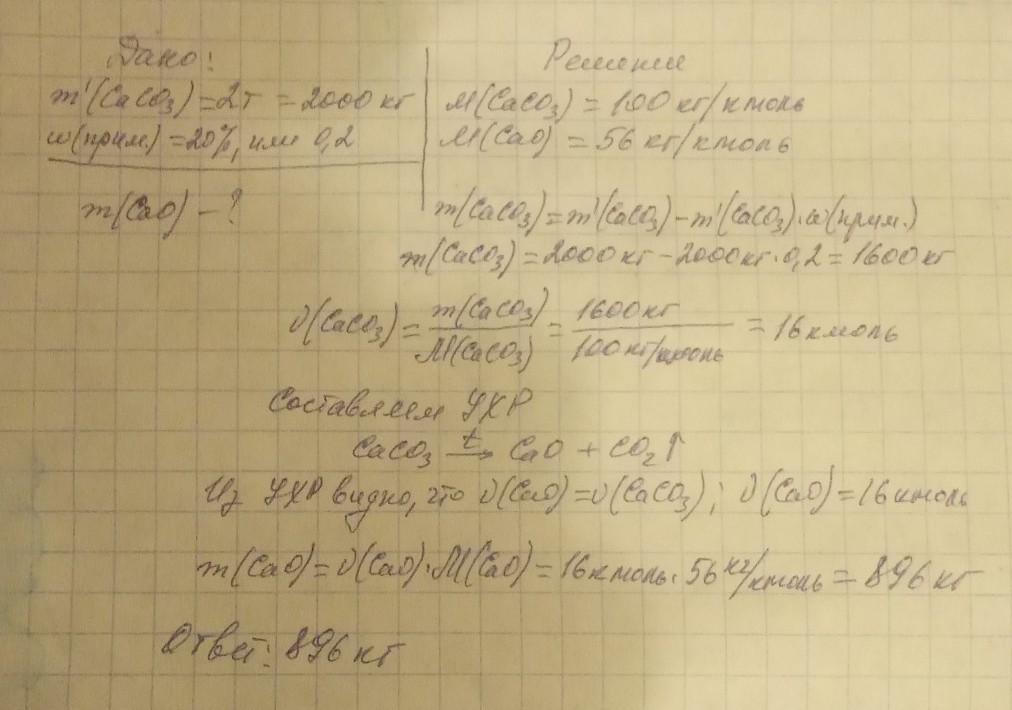 Дано:
m'(CaCO₃) = 2т = 2000 кг
w(прим.) = 20%, или 0,2
m(CaO) - ?
Решение
M(CaCO₃) = 100 кг/кмоль
M(CaO) = 56 кг/кмоль
m(CaCO₃) = m'(CaCO₃) - m'(CaCO₃)·w(прим.)
m(CaCO₃) = 2000 кг - 2000 кг·0,2 = 1600 кг
ν(CaCO₃) = m(CaCO₃)/M(CaCO₃) = 1600 кг/100 кг/кмоль = 16 кмоль
Составляем УХР
CaCO₃ t→ CaO + CO₂↑
Из УХР видно, что ν(CaO) = ν(CaCO₃); ν(CaO) = 16 кмоль
m(CaO) = ν(CaO)·M(CaO) = 16 кмоль·56 кг/кмоль = 896 кг
Ответ: 896 кг